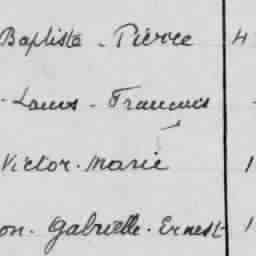 Baptiste - Pierre 4
- Louis - François
Victor - Marie 1
on - Gabrielle - Ernest 1